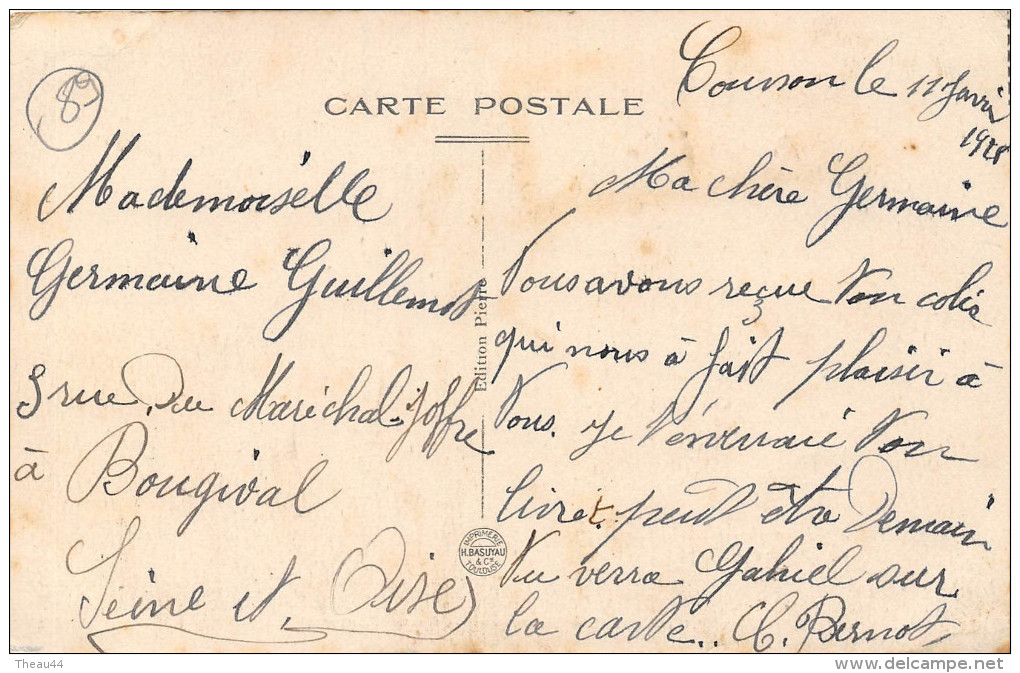 89
CARTE POSTALE
Mademoiselle
Germaine Guillemot
3 rue Du Maréchal Joffre
à
Bougival
Seine et Oise
Edition Pierre
IMPRIMERIE
H. BASUYAU
& Cie
TOULOUSE
le 11 Janvier
1928
Ma chère Germaine
Nous avons reçue ton colis
qui nous à fait plaisir à
tous. Je t'enverraié ton
livret. peut être Demain
tu verra Gahiel sur
la carte.. C. Bernot
Theau44
delcampe.net